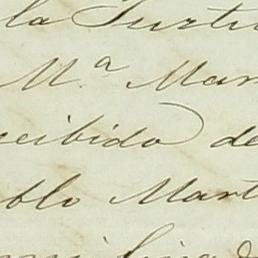 la Justi
M.ª Mar
cibido de
blo Mart